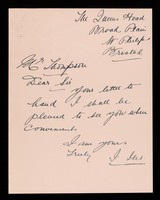 The Queens Head
Broad Plain
St Philips
Bristol
Mr Thompson
Dear Sir
Your letter to
hand I shall be
pleased to see you when
convenient
I am yours
Truly